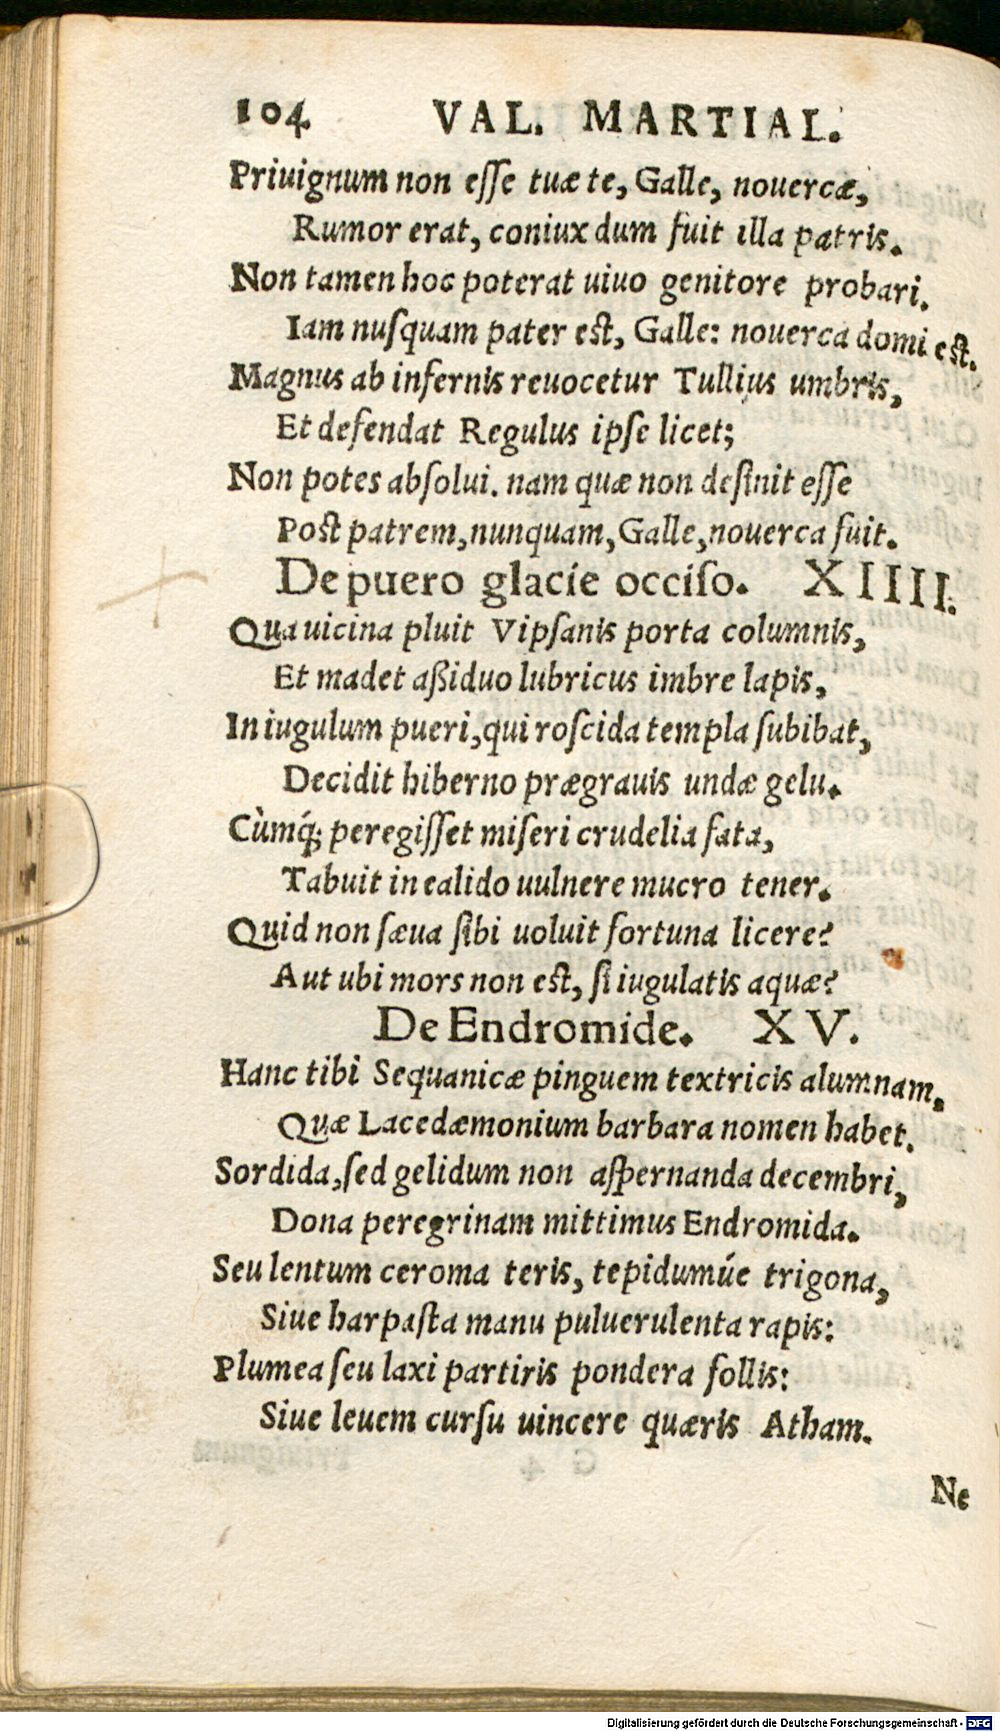 104 VAL. MARTIAL.
Priuignum non esse tuæ te, Galle, nouercæ,
Rumor erat, coniux dum fuit illa patris.
Non tamen hoc poterat uiuo genitore probari.
Iam nusquam pater est, Galle: nouerca domi est.
Magnus ab infernis reuocetur Tullius umbris,
Et defendat Regulus ipse licet;
Non potes absolui. nam quæ non desinit esse
Post patrem, nunquam, Galle, nouerca fuit.
De puero glacie occiso. XIIII.
Qua uicina pluit Vipsanis porta columnis,
Et madet aßiduo lubricus imbre lapis,
In iugulum pueri, qui roscida templa subibat,
Decidit hiberno prægrauis undæ gelu.
Cùmq́; peregisset miseri crudelia fata,
Tabuit in calido uulnere mucro tener.
Quid non sæua sibi uoluit fortuna licere?
Aut ubi mors non est, si iugulatis aquæ?
De Endromide. XV.
Hanc tibi Sequanicæ pinguem textricis alumnam,
Quæ Lacedæmonium barbara nomen habet.
Sordida, sed gelidum non aspernanda decembri,
Dona peregrinam mittimus Endromida.
Seu lentum ceroma teris, tepidumúe trigona,
Siue harpasta manu puluerulenta rapis:
Plumea seu laxi partiris pondera follis:
Siue leuem cursu uincere quæris Atham.
Ne
Digitalisierung gefördert durch die Deutsche Forschungsgemeinschaft - DFG